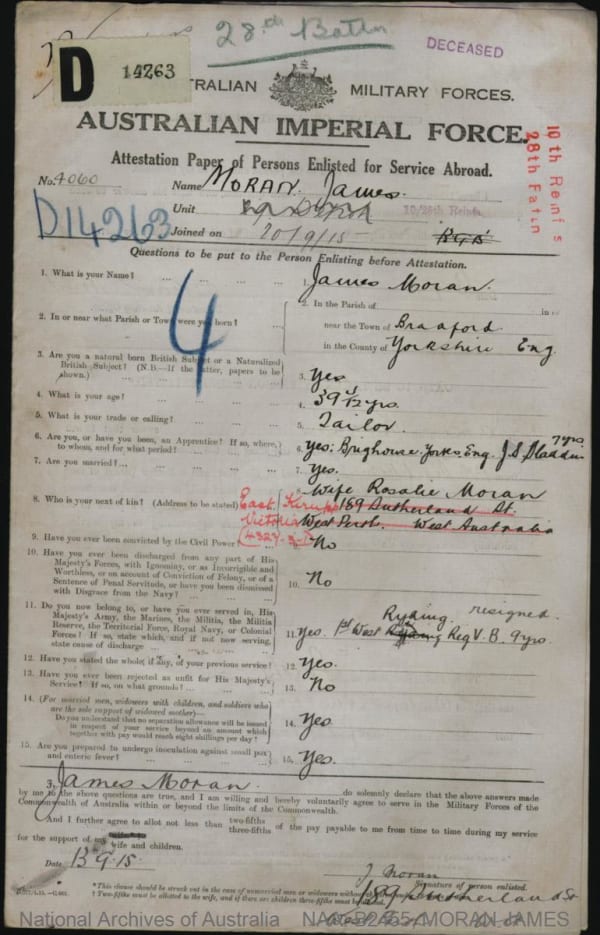 28th Battn
DECEASED
D 14263
AUSTRALIAN MILITARY FORCES.
AUSTRALIAN IMPERIAL FORCE.
10th Reinf s
28th Battn
Attestation Paper of Persons Enlisted for Service Abroad.
No. 4060 Name MORAN James.
D14263
Unit 10/28th Reinf.
Joined on 20/9/15
Questions to be put to the Person Enlisting before Attestation.
4
1. What is your Name? ... 1. James Moran.
2. In or near what Parish or Town were you born? ... 2. In the Parish of in or
near the Town of Bradford
in the County of Yorkshire Eng.
3. Are you a natural born British Subject or a Naturalized
British Subject? (N.B.—If the latter, papers to be
shown.) 3. Yes
4. What is your age? ... 4. 39 1/12 yrs.
5. What is your trade or calling? ... 5. Tailor.
6. Are you, or have you been, an Apprentice? If so, where,
to whom, and for what period? 6. Yes: Brighouse. Yorks Eng. J.S. Sladdin 7yrs
7. Are you married? ... 7. Yes.
8. Who is your next of kin? (Address to be stated) 8. Wife Rosalie Moran
189 Sutherland St.
West Perth. West Australia
East
Victoria
9. Have you ever been convicted by the Civil Power? No
10. Have you ever been discharged from any part of His
Majesty's Forces, with Ignominy, or as Incorrigible and
Worthless, or on account of Conviction of Felony, or of a
Sentence of Penal Servitude, or have you been dismissed
with Disgrace from the Navy? ... 10. No
11. Do you now belong to, or have you ever served in, His
Majesty's Army, the Marines, the Militia, the Militia
Reserve, the Territorial Force, Royal Navy, or Colonial
Forces? If so, state which, and if not now serving,
state cause of discharge ... 11. Yes. 1st West Ryding Reg V.B. 9yrs. resigned.
12. Have you stated the whole, if any, of your previous service? 12. Yes.
13. Have you ever been rejected as unfit for His Majesty's
Service? If so, on what grounds? ... 13. No
14. (For married men, widowers with children, and soldiers who
are the sole support of widowed mother)—
Do you understand that no separation allowance will be issued
in respect of your service beyond an amount which
together with pay would reach eight shillings per day? 14. Yes
15. Are you prepared to undergo inoculation against small pox
and enteric fever? ... 15. Yes.
I, James Moran. do solemnly declare that the above answers made
by me to the above questions are true, and I am willing and hereby voluntarily agree to serve in the Military Forces of the
Commonwealth of Australia within or beyond the limits of the Commonwealth.
And I further agree to allot not less than two-fifths
three-fifths of the pay payable to me from time to time during my service
for the support of my wife and children.
Date 13.9.15. J Moran
Signature of person enlisted.
189 Sutherland St
National Archives of Australia NAA: B2455, MORAN JAMES